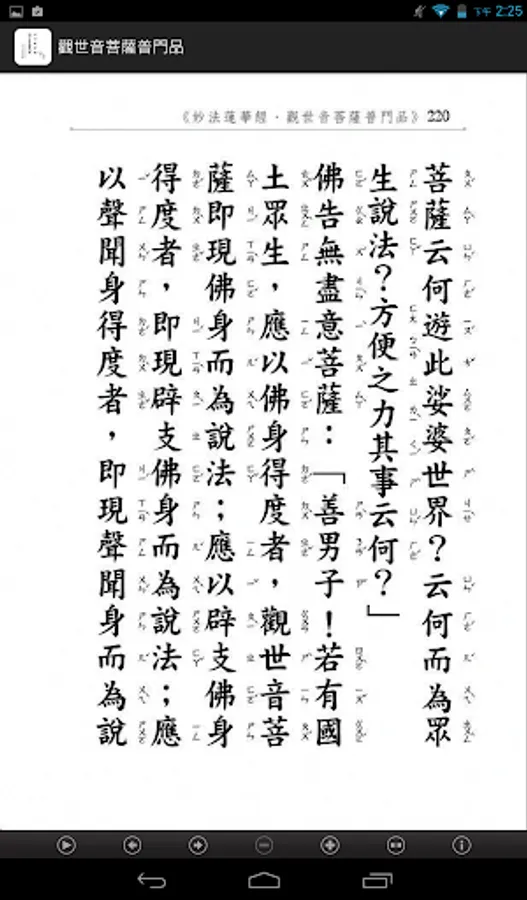 下午 2:25
觀世音菩薩普門品
《妙法蓮華經·觀世音菩薩普門品》 220
菩薩云何遊此娑婆世界？云何而為眾
生說法？方便之力其事云何？」
佛告無盡意菩薩：「善男子！若有國
土眾生，應以佛身得度者，觀世音菩
薩即現佛身而為說法；應以辟支佛身
得度者，即現辟支佛身而為說法；應
以聲聞身得度者，即現聲聞身而為說